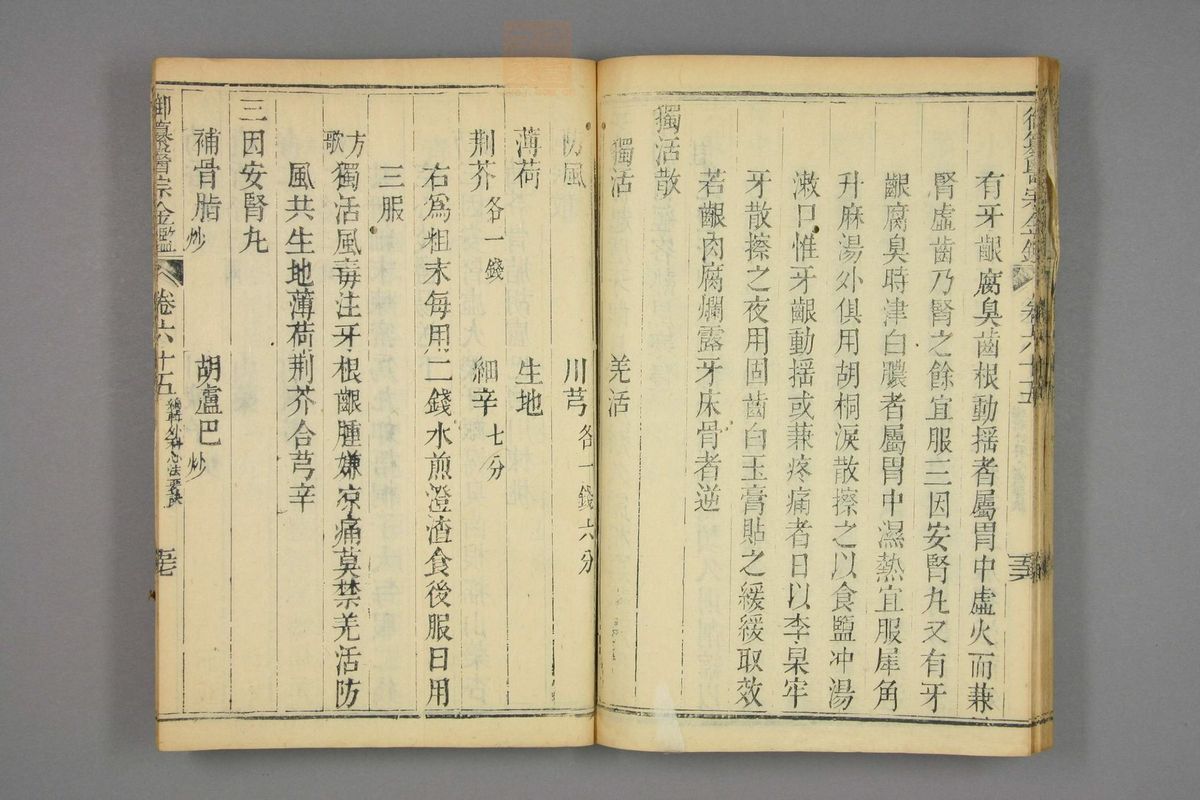 有牙齦腐臭齒根動搖者屬胃中虛火而兼
腎虛齒乃腎之餘宜服三因安腎丸又有牙
齦腐臭時津白膿者屬胃中濕熱宜服犀角
升麻湯外俱用胡桐淚散擦之以食鹽冲湯
漱口惟牙齦動搖或兼疼痛者日以李杲牢
牙散擦之夜用固齒白玉膏貼之緩緩取效
若齦肉腐爛露牙床骨者逆
獨活散
獨活 羌活
防風 川芎各一錢六分
薄荷 生地
荆芥各一錢 細辛七分
右爲粗末每用二錢水煎澄渣食後服日用
三服
方歌 獨活風毒注牙根齦腫嫌凉痛莫禁羌活防
風共生地薄荷荆芥合芎辛
三因安腎丸
補骨脂炒 胡盧巴炒
御纂醫宗金鑑 卷六十五 編輯外科心法要訣